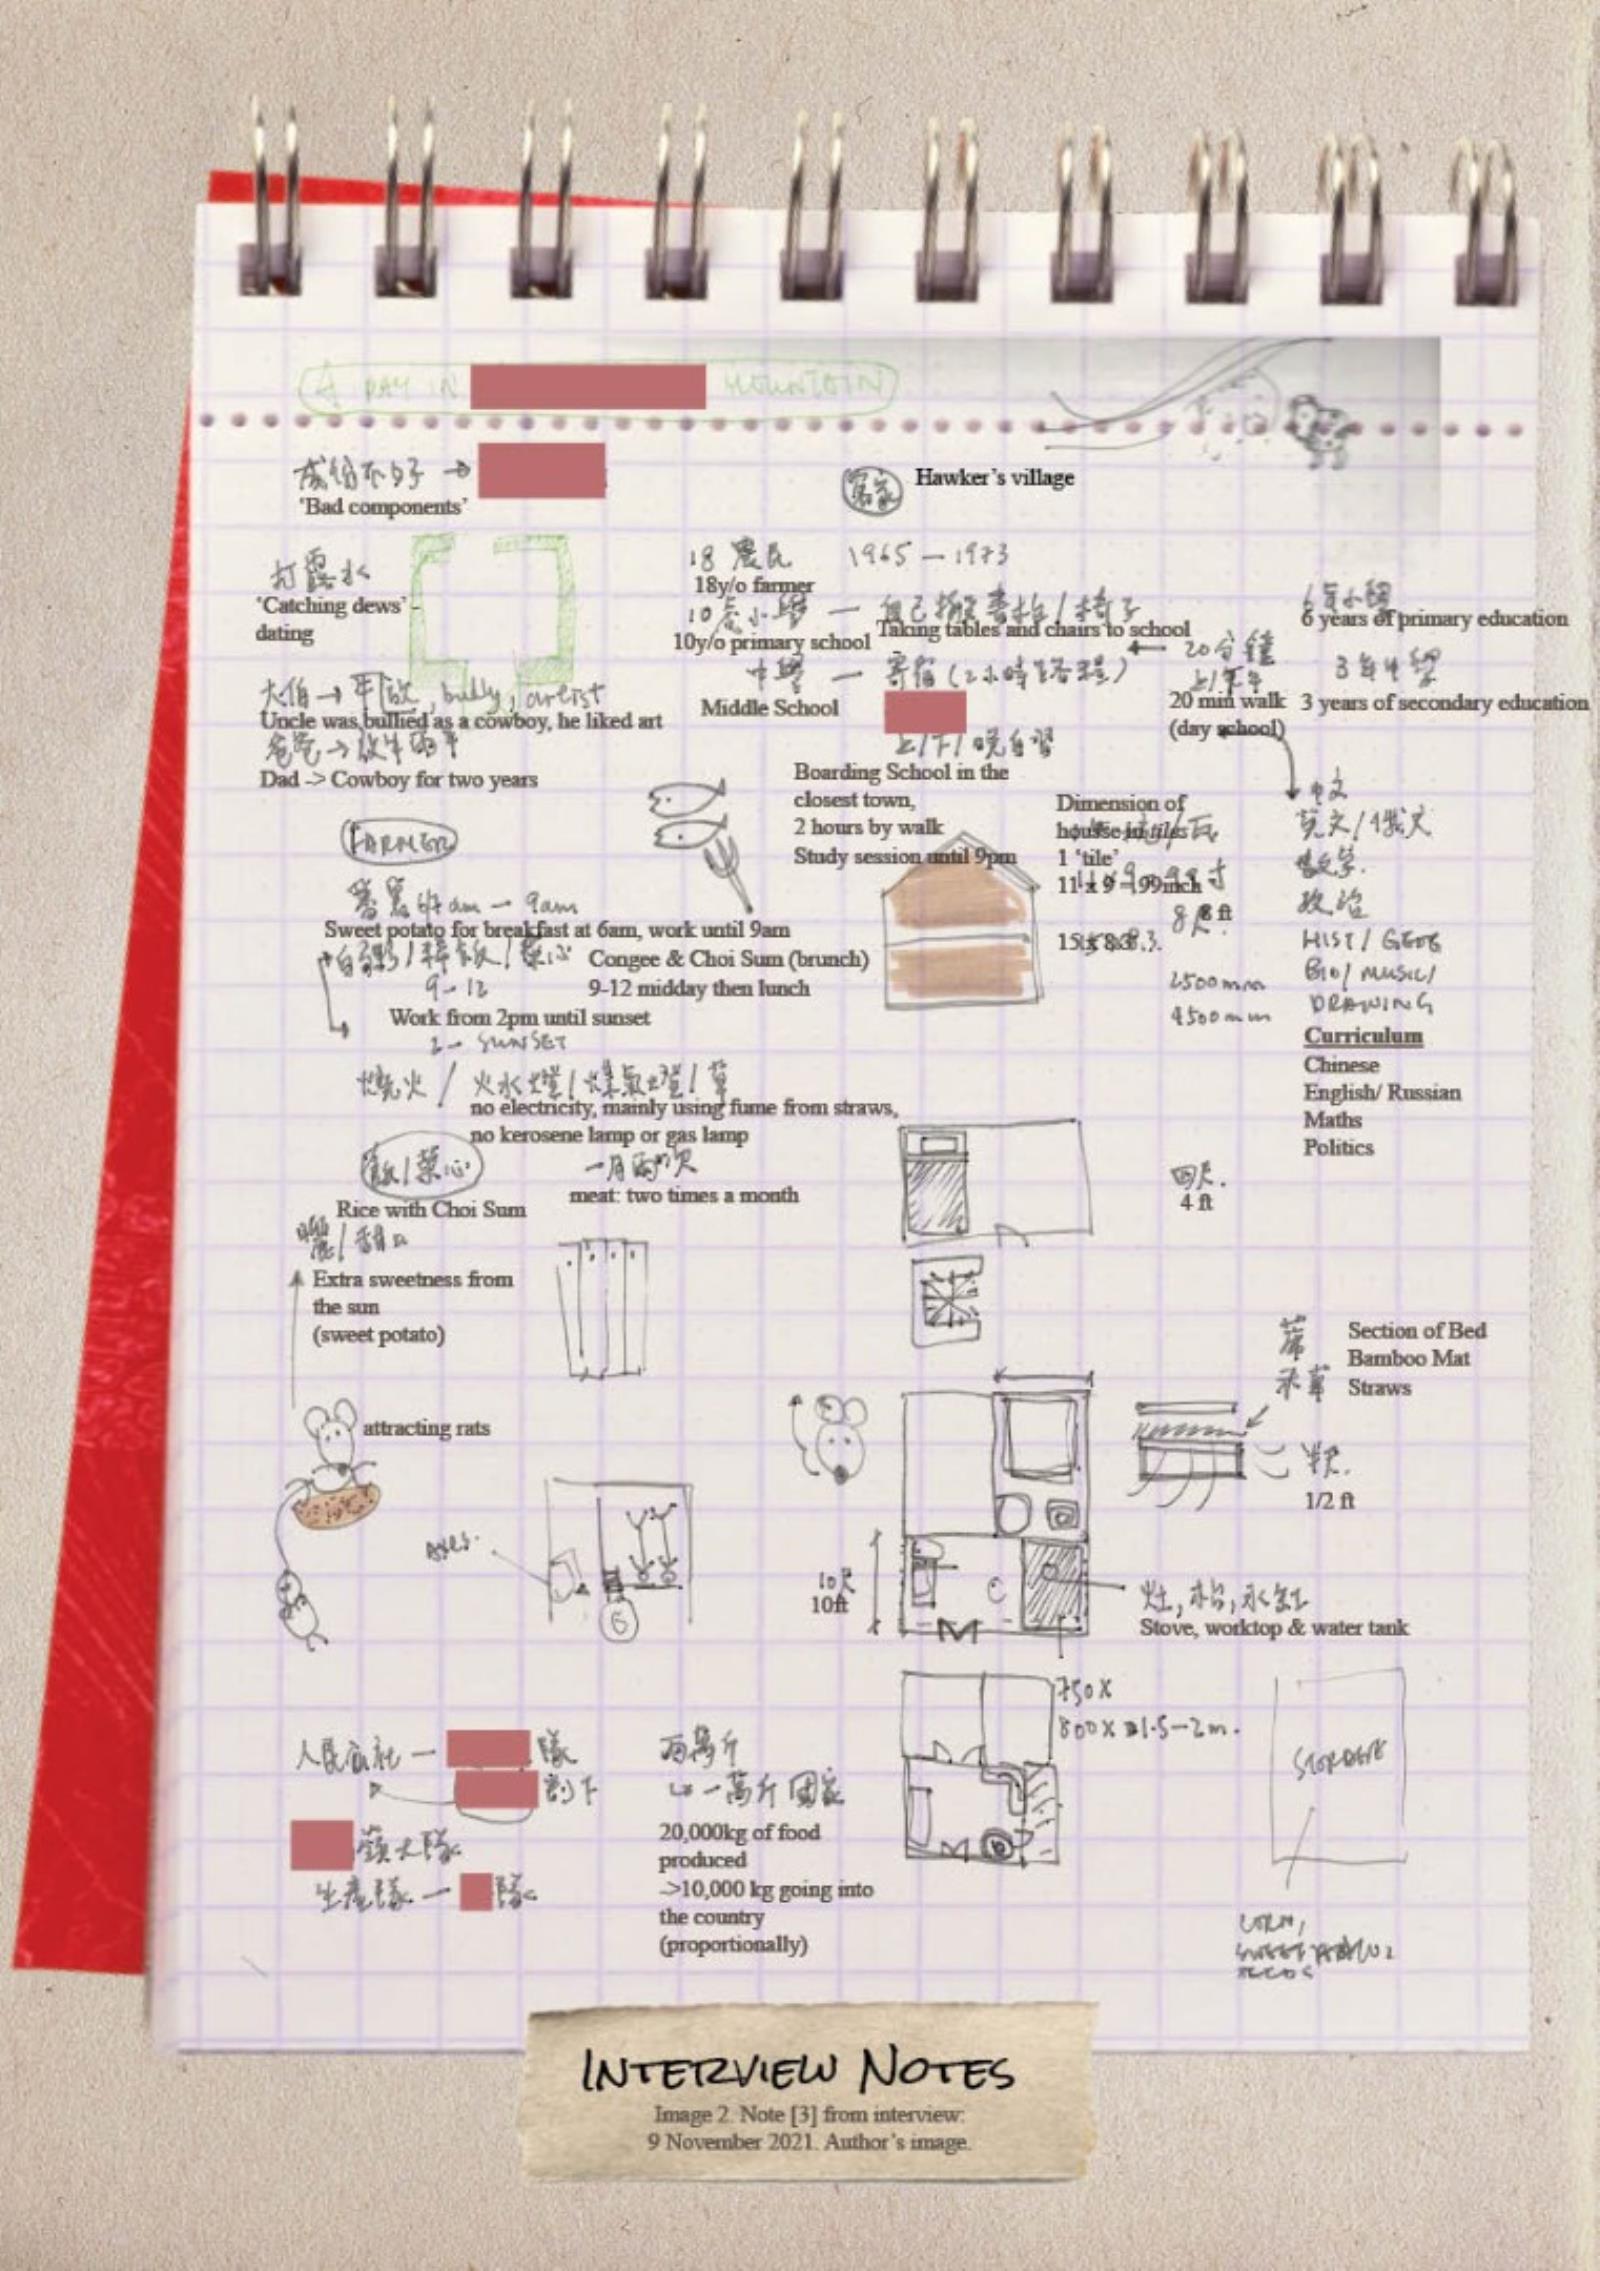 A DAY IN MOUNTAIN
成份不好 →
'Bad components'
客家
Hawker's village
打露水
'Catching dews'
dating
18 農民 1965 — 1973
18y/o farmer
10歲小學 — 自己搬書枱/椅子
10y/o primary school
Taking tables and chairs to school
中學 — 寄宿(2小時路程)
Middle School
上/下/晚自習
Boarding School in the
closest town,
2 hours by walk
Study session until 9pm
20分鐘
上/下午
20 min walk
(day school)
6年小學
6 years of primary education
3年中學
3 years of secondary education
大伯 → 牛, bully, artist
Uncle was bullied as a cowboy, he liked art
爸爸 → 放牛兩年
Dad -> Cowboy for two years
FARMER
番薯 6am — 9am
Sweet potato for breakfast at 6am, work until 9am
白粥 / 菜心
9 - 12
Congee & Choi Sum (brunch)
9-12 midday then lunch
Work from 2pm until sunset
2 — SUNSET
燒火 / 火水燈/煤氣燈/草
no electricity, mainly using fume from straws,
no kerosene lamp or gas lamp
飯/菜心
Rice with Choi Sum
一月兩次
meat: two times a month
曬/番薯
Extra sweetness from
the sun
(sweet potato)
attracting rats
Dimension of
house in tiles
1 'tile'
11 x 9 - 99inch
8尺
8 ft
15 x 8.3.
2500mm
4500mm
中文
英文/俄文
數學.
政治
HIST / GEOG
BIO / MUSIC /
DRAWING
Curriculum
Chinese
English/ Russian
Maths
Politics
四尺.
4 ft
蓆
禾草
Section of Bed
Bamboo Mat
Straws
半尺.
1/2 ft
10尺
10ft
灶, 枱, 水缸
Stove, worktop & water tank
750 X
800 X 1.5 — 2m.
STORAGE
CORN,
SWEET POTATO
人民公社 — 隊
割下
嶺大隊
生產隊 — 隊
兩萬斤
一萬斤 國家
20,000kg of food
produced
->10,000 kg going into
the country
(proportionally)
INTERVIEW NOTES
Image 2. Note [3] from interview:
9 November 2021. Author's image.